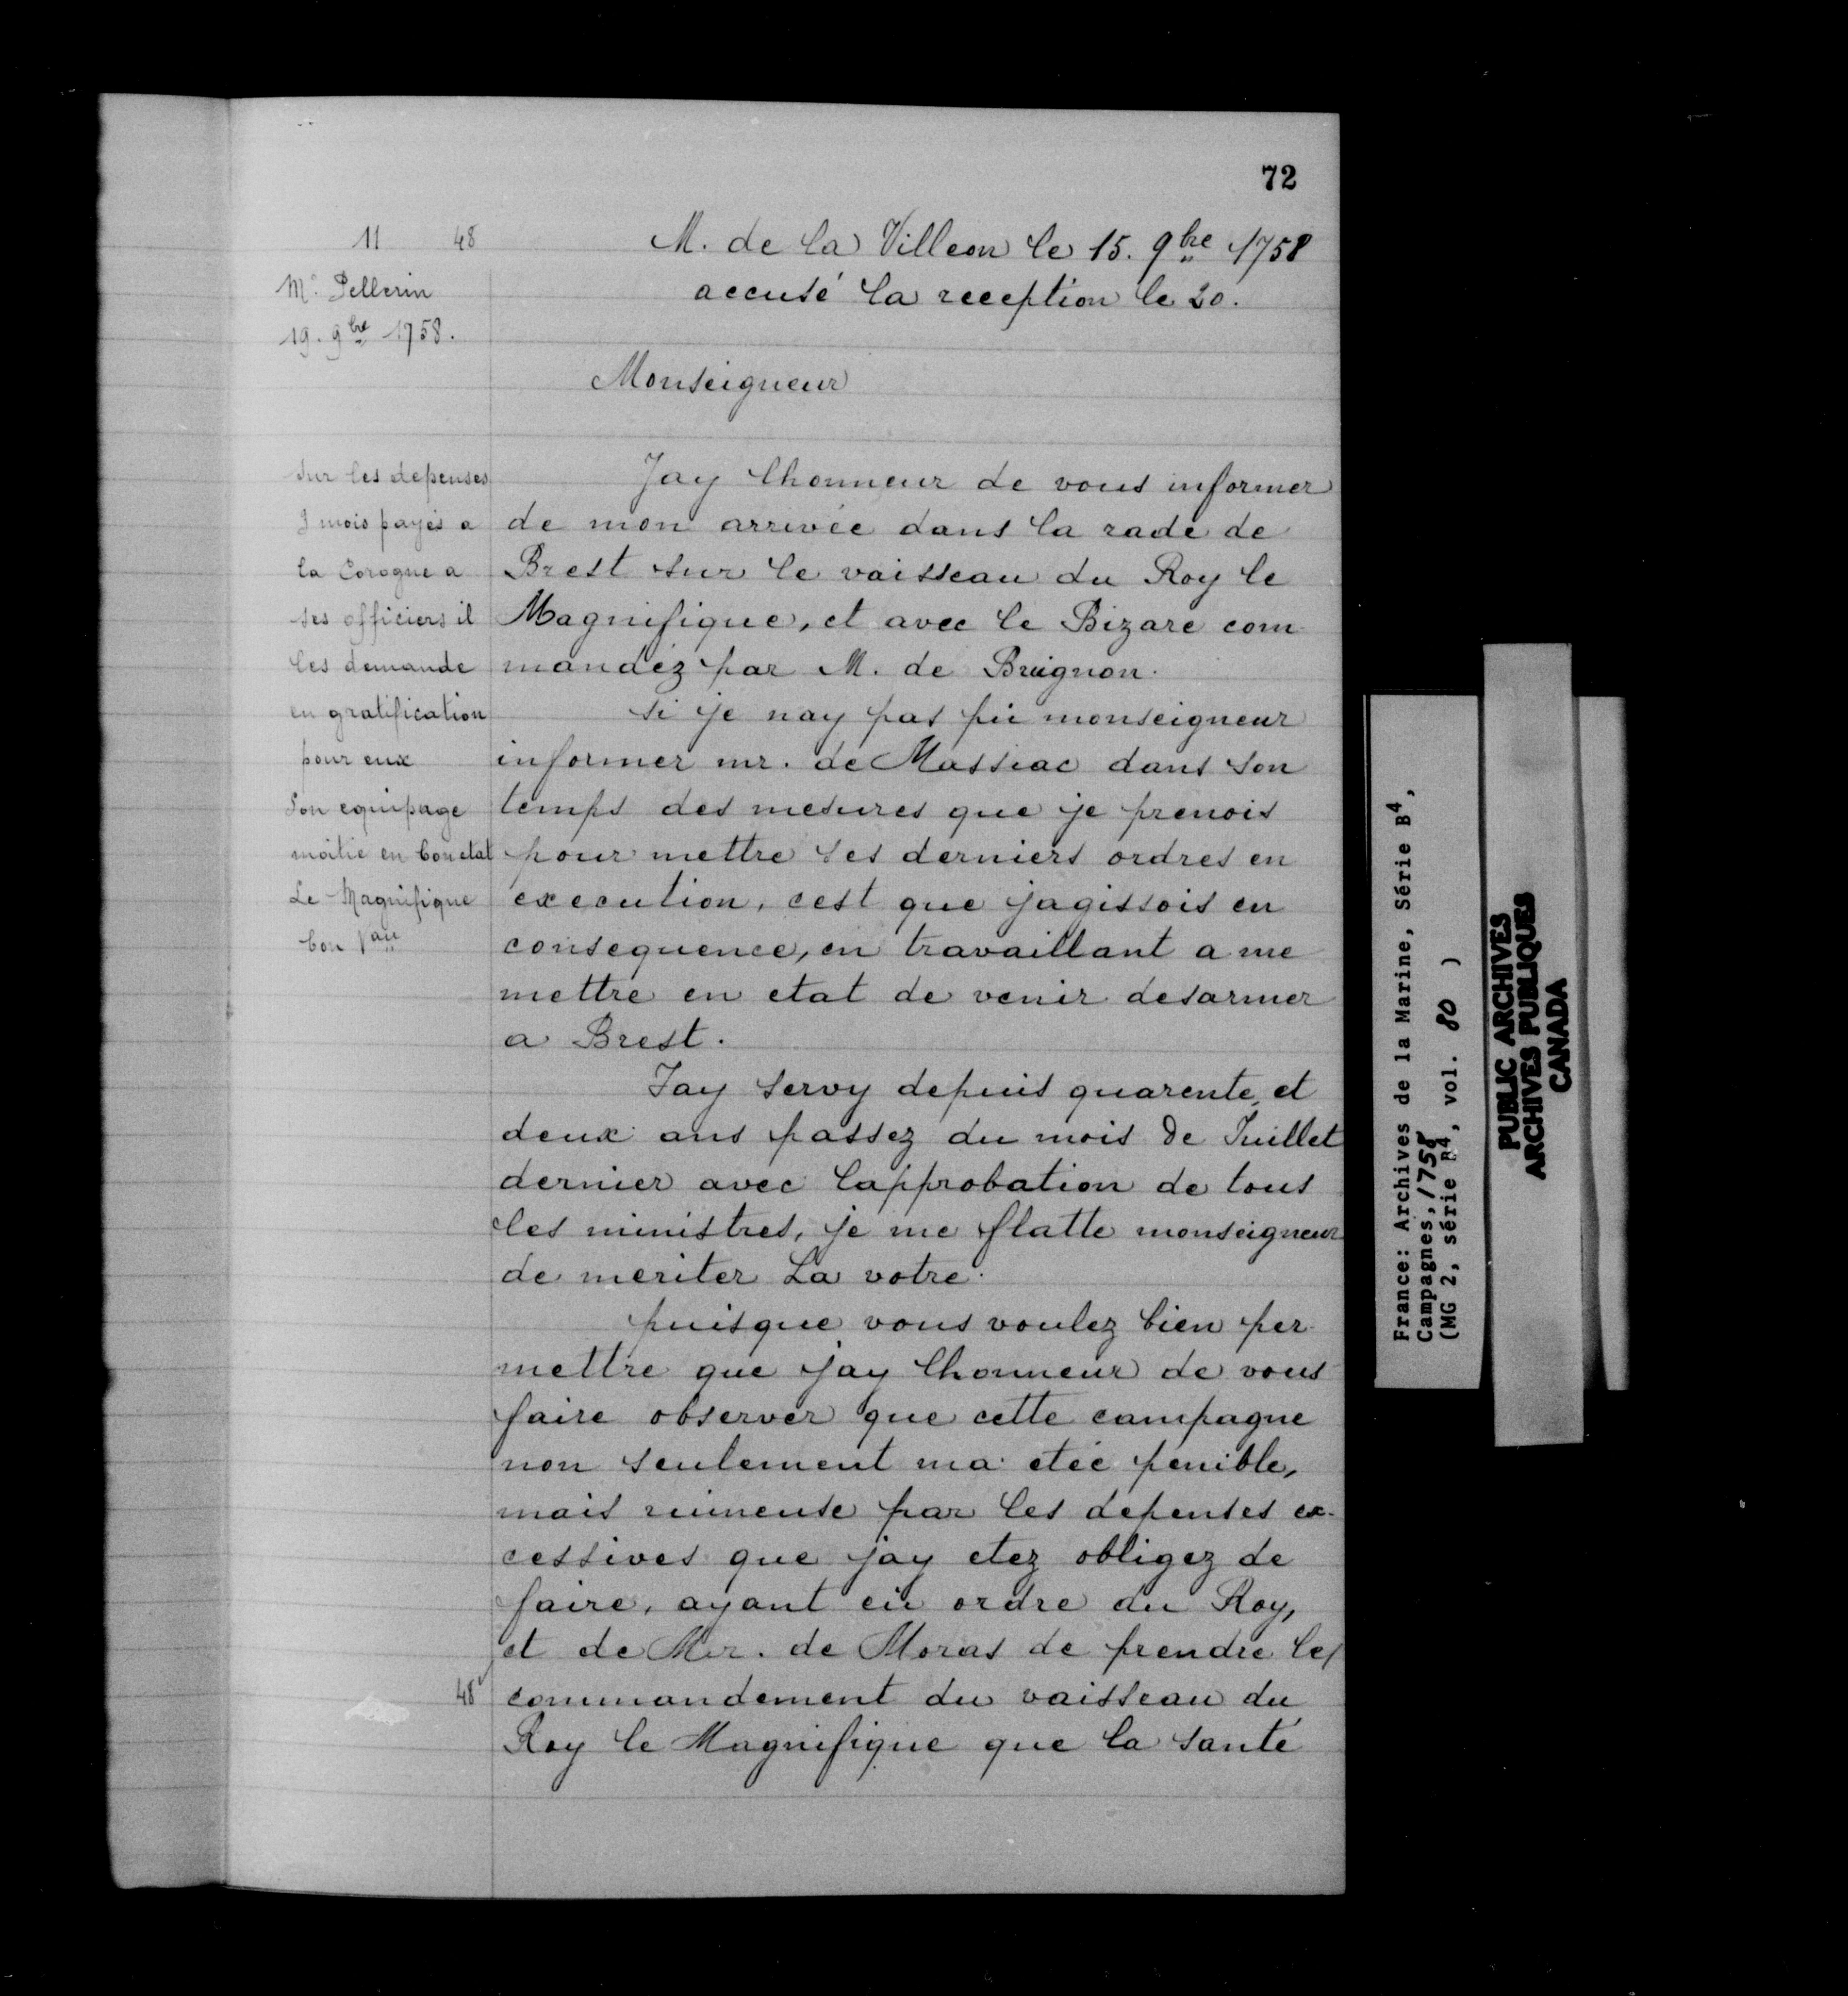 72
11 48
Mr. Pellerin
19. 9bre 1758.
M. de la Villeon le 15. 9bre 1758
accusé la reception le 20.
Monseigneur
Sur les depenses
3 mois payés a
la Corogne a
ses officiers il
les demande
en gratification
pour eux
Son equipage
moitie en bon etat
Le Magnifique
bon Vau
Jay lhonneur de vous informer
de mon arrivée dans la rade de
Brest sur le vaisseau du Roy le
Magnifique, et avec le Bizare com
mandéz par M. de Bruignon.
si je nay pas pü monseigneur
informer mr. de Massiac dans son
temps des mesures que je prenois
pour mettre ses derniers ordres en
execution, cest que jagissois en
consequence, en travaillant a me
mettre en etat de venir desarmer
a Brest.
Jay servy depuis quarente et
deux ans passez du mois de Juillet
dernier avec lapprobation de tous
les ministres, je me flatte monseigneur
de meriter La votre.
puisque vous voulez bien per
mettre que jay lhonneur de vous
faire observer que cette campagne
non seulement ma etée penible,
mais ruineuse par les depenses ex-
cessives que jay etez obligez de
faire, ayant eü ordre du Roy,
et de Mr. de Moras de prendre le/
48 commandement du vaisseau du
Roy le Magnifique que la santé
France: Archives de la Marine, Série B4,
Campagnes, 1758
(MG 2, série B4, vol. 80 )
PUBLIC ARCHIVES
ARCHIVES PUBLIQUES
CANADA